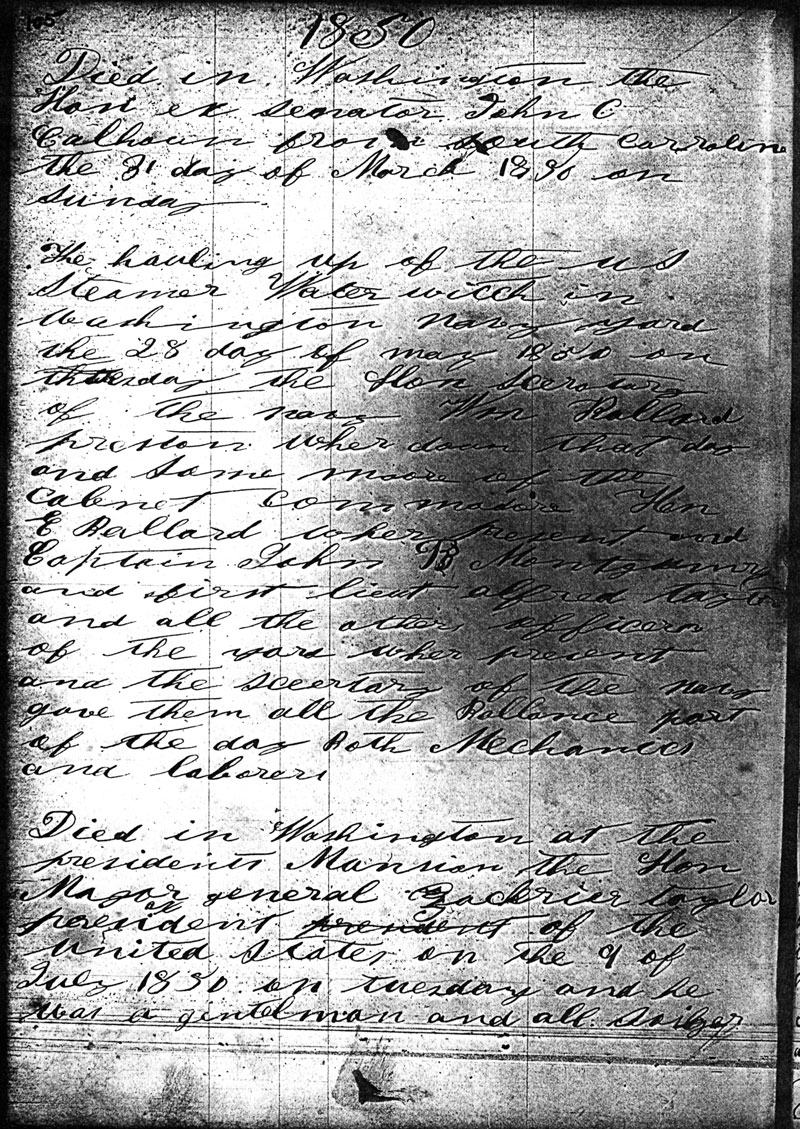 165
1850
Died in Washington the
Hon ex senator John C
Calhoun from south Carrolina
the 31 day of March 1850 on
Sunday
The hauling up of the US
Steamer Water witch in
Washington Navy yard
the 28 day of may 1850 on
the Hon Secretary
of the navy Wm Ballard
preston wher down that day
and some moore of the
Cabnet Commodore Hon
E Ballard wher present and
Captain John B Montgumry
and first lieut alfred taylor
and all the other officers
of the yard wher present
and the secertary of the navy
gave them all the Ballance part
of the day Both Mechanics
and laborers
Died in Washington at the
presidents Mansion the Hon
Magor general Zackrier taylor
president president of the
United States on the 9 of
July 1850 on tuesday and he
was a gentelman and all